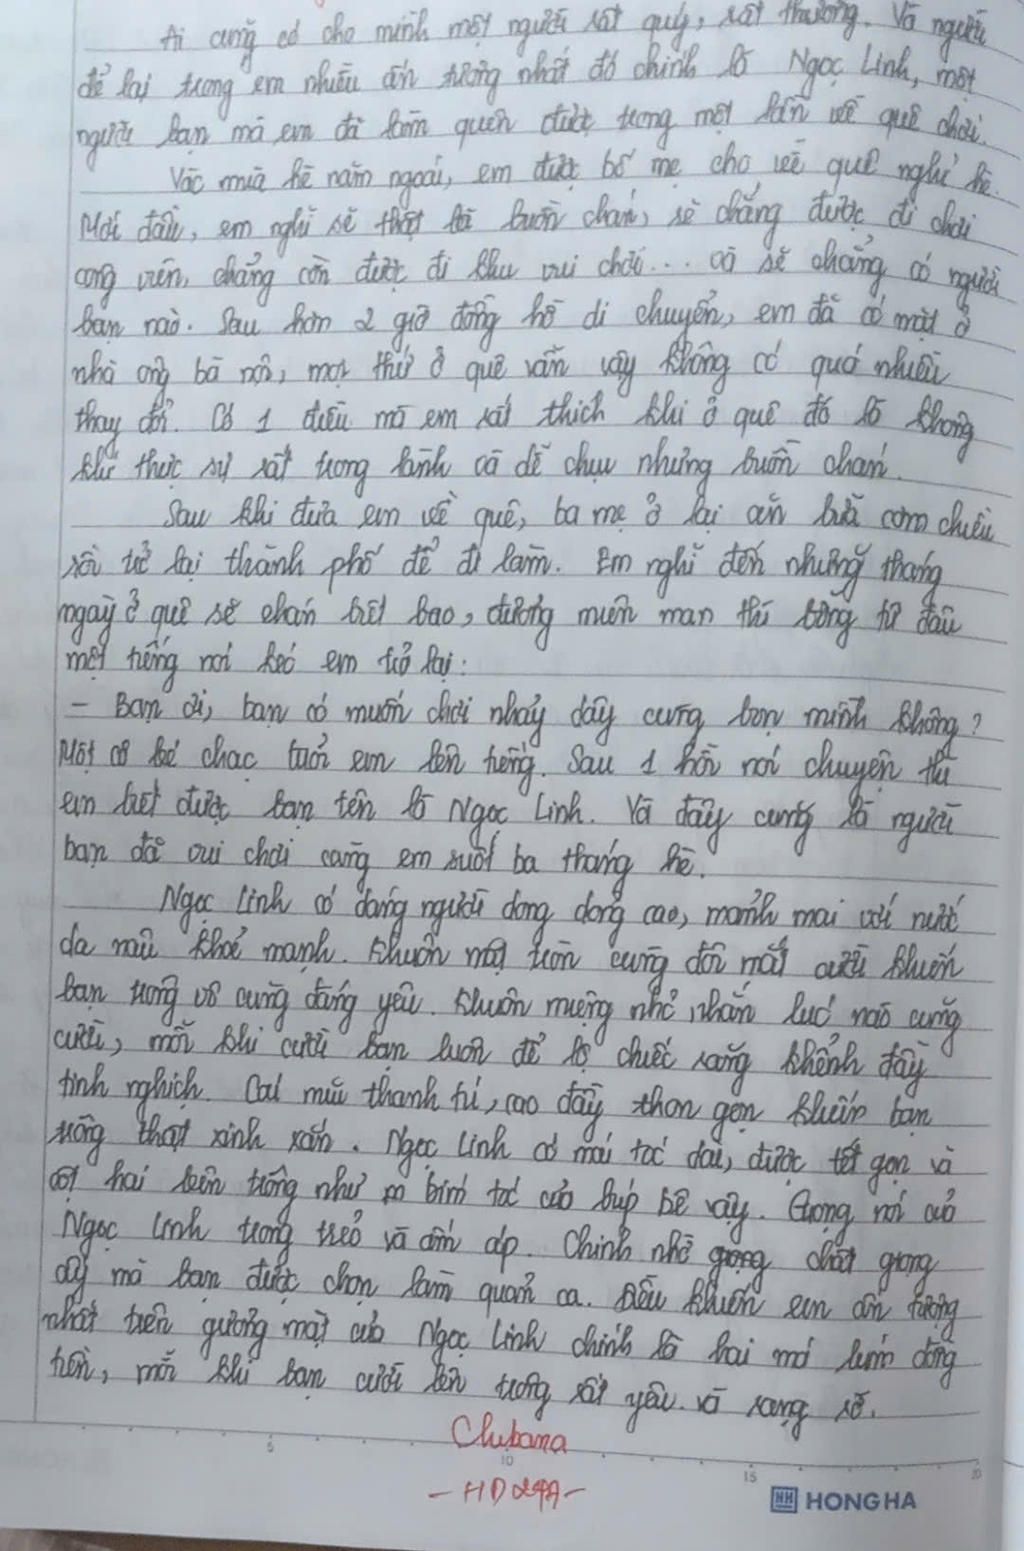 Ai cũng có cho mình một người rất quý, rất thương. Và người
để lại trong em nhiều ấn tượng nhất đó chính là Ngọc Linh, một
người bạn mà em đã làm quen được trong một lần về quê chơi.
Vào mùa hè năm ngoái, em được bố mẹ cho về quê nghỉ hè.
Mới đầu, em nghĩ sẽ thật là buồn chán, sẽ chẳng được đi chơi
công viên, chẳng còn được đi khu vui chơi... và sẽ chẳng có người
bạn nào. Sau hơn 2 giờ đồng hồ di chuyển, em đã có mặt ở
nhà ông bà nội, mọi thứ ở quê vẫn vậy không có quá nhiều
thay đổi. Có 1 điều mà em rất thích khi ở quê đó là không
khí thực sự rất trong lành và dễ chịu nhưng buồn chán.
Sau khi đưa em về quê, ba mẹ ở lại ăn bữa cơm chiều
rồi trở lại thành phố để đi làm. Em nghĩ đến những tháng
ngày ở quê sẽ chán biết bao, đương miên man thì bỗng từ đâu
một tiếng nói kéo em trở lại:
- Bạn ơi, bạn có muốn chơi nhảy dây cùng bọn mình không?
Một cô bé chạc tuổi em lên tiếng. Sau 1 hồi nói chuyện thì
em biết được bạn tên là Ngọc Linh. Và đây cũng là người
bạn đã vui chơi cùng em suốt ba tháng hè.
Ngọc Linh có dáng người dong dỏng cao, mảnh mai với nước
da nâu khoẻ mạnh. Khuôn mặt tròn cùng đôi mắt cười khiến
bạn trông vô cùng đáng yêu. Khuôn miệng nhỏ nhắn lúc nào cũng
cười, mỗi khi cười bạn luôn để lộ chiếc răng khểnh đầy
tinh nghịch. Cái mũi thanh tú, cao đầy thon gọn khiến bạn
trông thật xinh xắn. Ngọc Linh có mái tóc dài, được tết gọn và
cột hai bên trông như bím tóc của búp bê vậy. Giọng nói của
Ngọc Linh trong trẻo và ấm áp. Chính nhờ giọng chất giọng
ấy mà bạn được chọn làm quản ca. Điều khiến em ấn tượng
nhất trên gương mặt của Ngọc Linh chính là hai má lúm đồng
tiền, mỗi khi bạn cười lên trông rất yêu và rạng rỡ.
Chubana
5 10 15 20
HONG HA